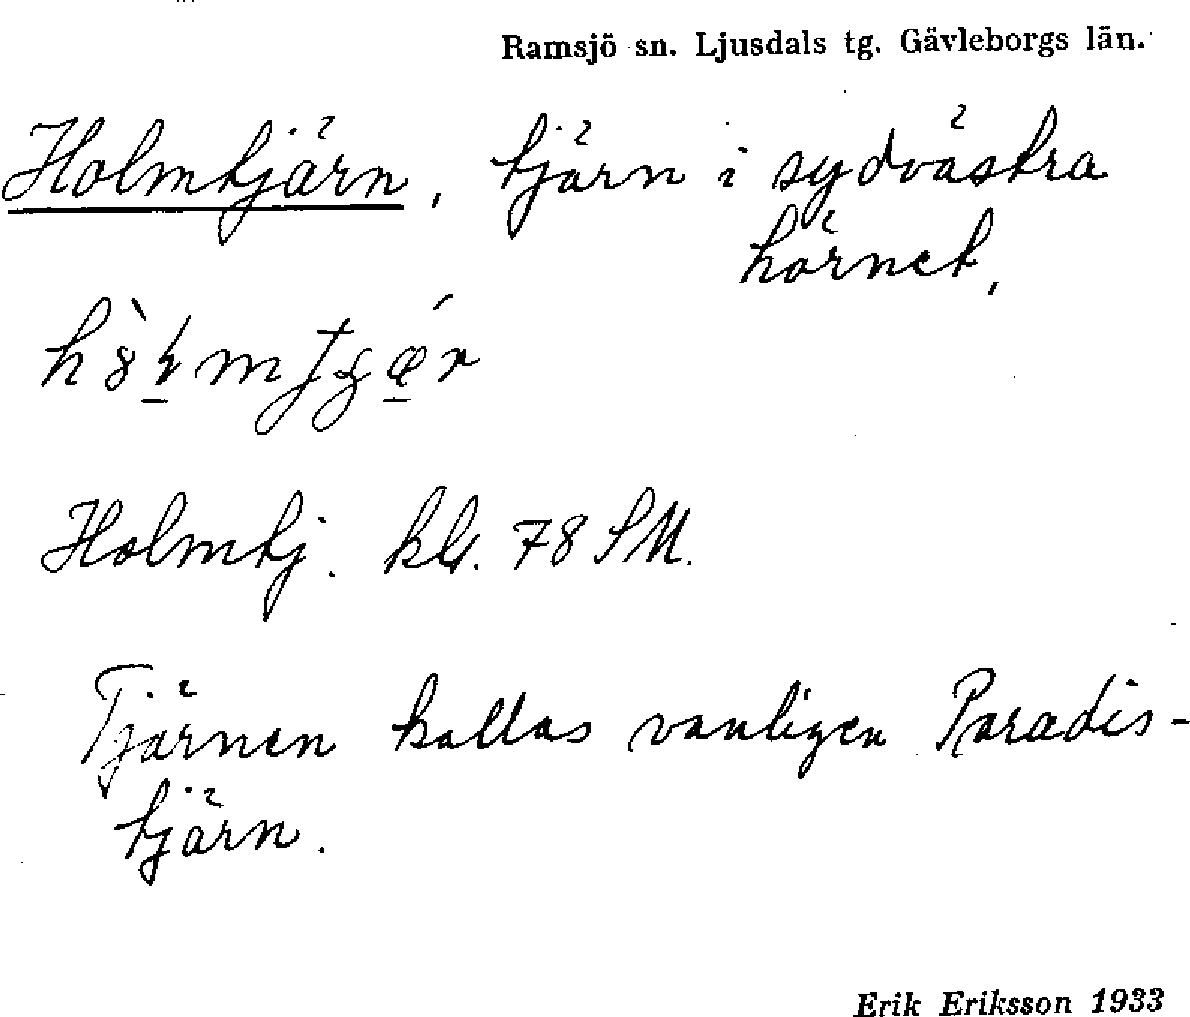 Ramsjö sn. Ljusdals tg. Gävleborgs län.
Holmtjärn, tjärn i sydvästra
hörnet,
Holmtj. kbl. 78 SM.
Tjärnen kallas vanligen Paradis-
tjärn.
Erik Eriksson 1933